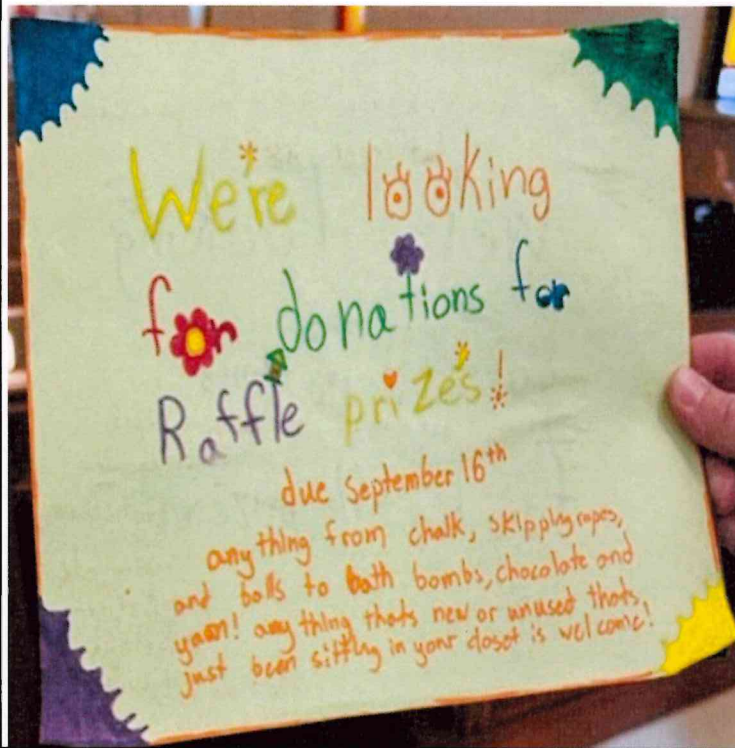 We're looking
for donations for
Raffle prizes!
due September 16th
any thing from chalk, skipping ropes,
and balls to bath bombs, chocolate and
yarn! any thing thats new or unused thats
just been sitting in your closet is welcome!